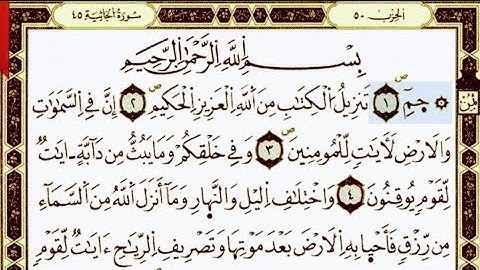 الحزب ٥٠
سورة الجاثية ٤٥
ثمن
بِسْمِ اللَّهِ الرَّحْمَٰنِ الرَّحِيمِ
حمٓ ١ تَنزِيلُ الْكِتَابِ مِنَ اللَّهِ الْعَزِيزِ الْحَكِيمِ ٢ إِنَّ فِي السَّمَاوَاتِ
وَالَارْضِ لَأَيَاتٍ لِّلْمُومِنِينَ ٣ وَفِي خَلْقِكُمْ وَمَا يَبُثُّ مِن دَآبَّةٍ ايَاتٌ
لِّقَوْمٍ يُوقِنُونَ ٤ وَاخْتِلَافِ الَّيْلِ وَالنَّهَارِ وَمَا أَنزَلَ اللَّهُ مِنَ السَّمَاءِ
مِن رِّزْقٍ فَأَحْيَا بِهِ الَارْضَ بَعْدَ مَوْتِهَا وَتَصْرِيفِ الرِّيَاحِ ءَايَاتٌ لِّقَوْمٍ